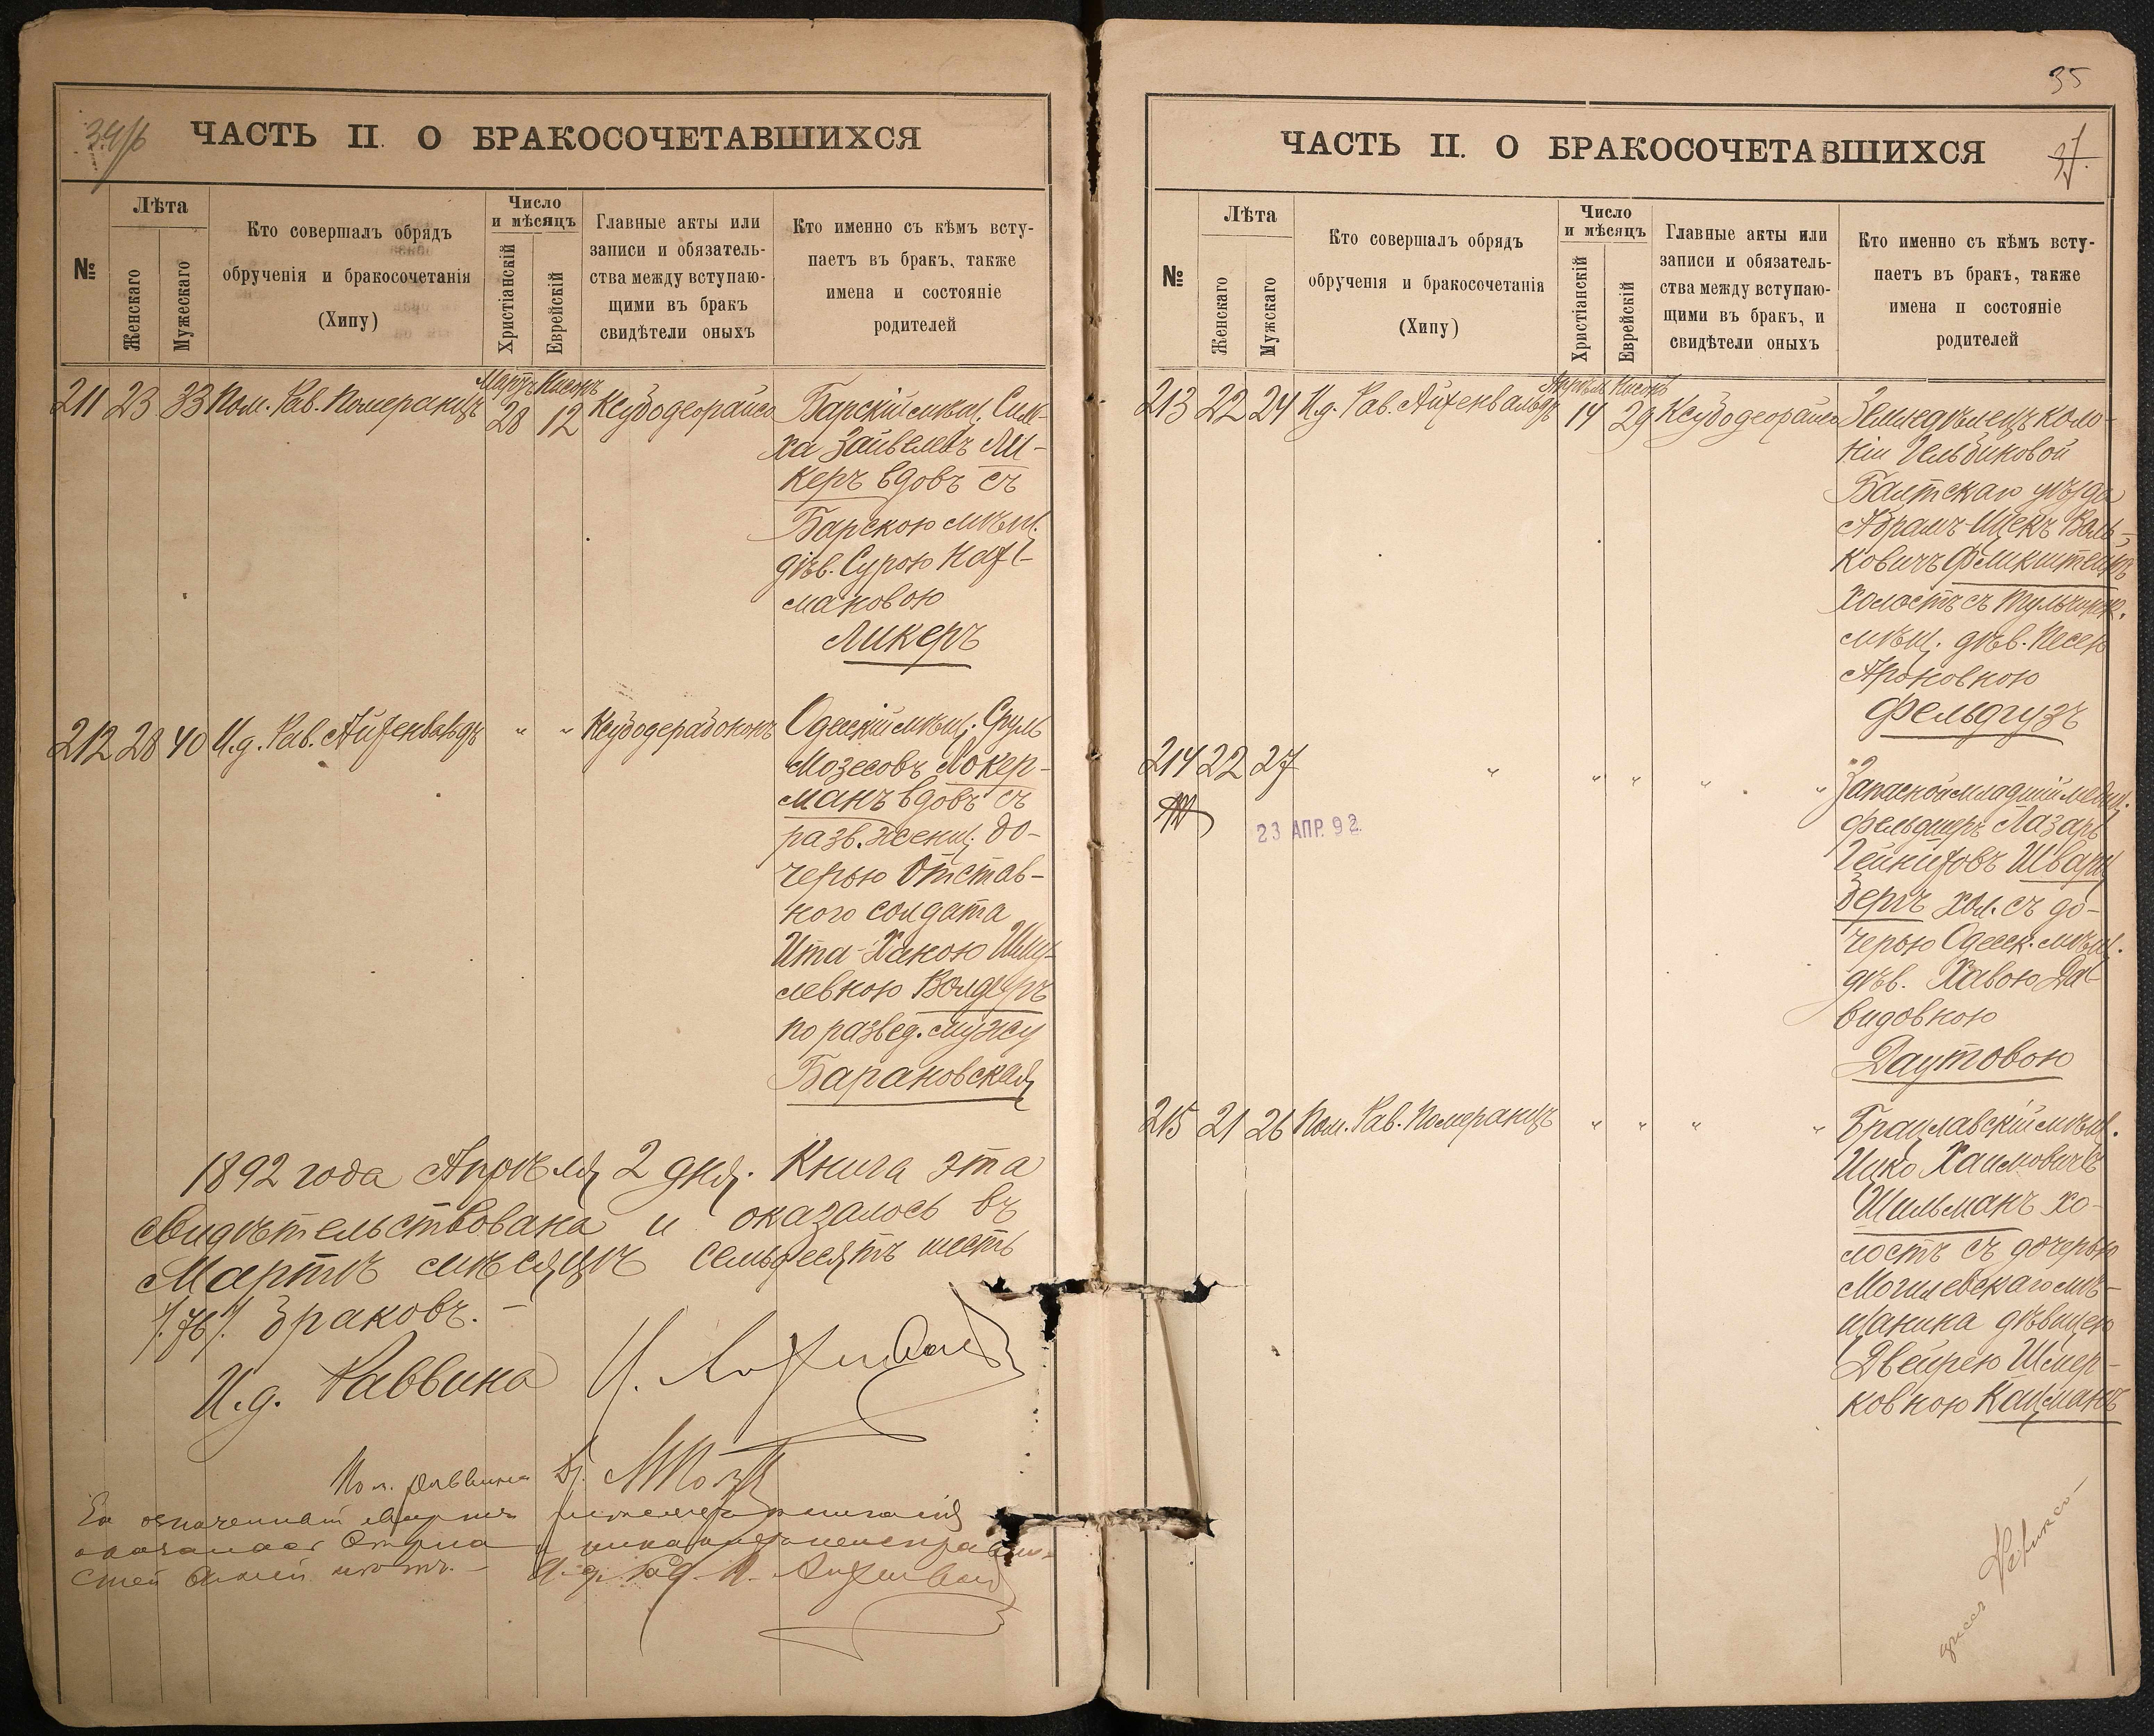 34/б
ЧАСТЬ II. О БРАКОСОЧЕТАВШИХСЯ
№
Лѣта
Женскаго
Мужескаго
Кто совершалъ обрядъ
обрученія и бракосочетанія
(Хипу)
Число
и мѣсяцъ
Христіанскій
Еврейскій
Главные акты или
записи и обязатель-
ства между вступаю-
щими въ бракъ
свидѣтели оныхъ
Кто именно съ кѣмъ всту-
паетъ въ бракъ, также
имена и состояніе
родителей
Мартъ Нисонъ
211 23 33 Пом. Рав. Померанцъ 28 12 Ксубодеорайса
Барскій мѣщ. Сим-
ха Зайвелевъ Ли-
керъ вдовъ съ
Барскою мѣщ.
дѣв. Сурою Наф-
мановою
Ликеръ
212 28 40 И.д. Рав. Айзенвальдъ " " Ксубодерабононъ
Одесскій мѣщ. Сруль
Мозесовъ Локер-
манъ вдовъ съ
разв. женщ. до-
черью Отстав-
ного солдата
Ита-Ханою Шму-
левною
по развед. мужу
Барановская
1892 года Апрѣля 2 дня. Книга эта
свидѣтельствована и оказалось въ
Мартѣ мѣсяцѣ семьдесятъ шесть
/.76/. браковъ. –
И.д. Раввина
Пом. раввина
35
ЧАСТЬ II. О БРАКОСОЧЕТАВШИХСЯ
№
Лѣта
Женскаго
Мужскаго
Кто совершалъ обрядъ
обрученія и бракосочетанія
(Хипу)
Число
и мѣсяцъ
Христіанскій
Еврейскій
Главные акты или
записи и обязатель-
ства между вступаю-
щими въ бракъ, и
свидѣтели оныхъ
Кто именно съ кѣмъ всту-
паетъ въ бракъ, также
имена и состояніе
родителей
Апрѣль Нисонъ
213 22 24 И.д. Рав. Айзенвальдъ 14 29 Ксубодеорайса
Земледѣлецъ коло-
ніи Гельбиковой
Балтскаго уѣзда
Абрамъ-Ицекъ Воль-
ковичъ Финкштейнъ
холостъ съ Тульчинск.
мѣщ. дѣв. Песею
Ароновною
Фельдгузъ
214 22 27 " " " " "
23 АПР. 92.
Запасной младшій медиц.
фельдшеръ Лазарь
Шварц
бергъ хол. съ до-
черью Одесск. мѣщ.
дѣв. Хавою Да-
видовною
Даутовою
215 21 26 Пом. Рав. Померанцъ " " " "
Брацлавскій мѣщ.
Ицко Хаимовичъ
Шильманъ хо-
лостъ съ дочерью
Могилевскаго мѣ-
щанина дѣвицею
Двейрею Шмер-
ковною Кацманъ